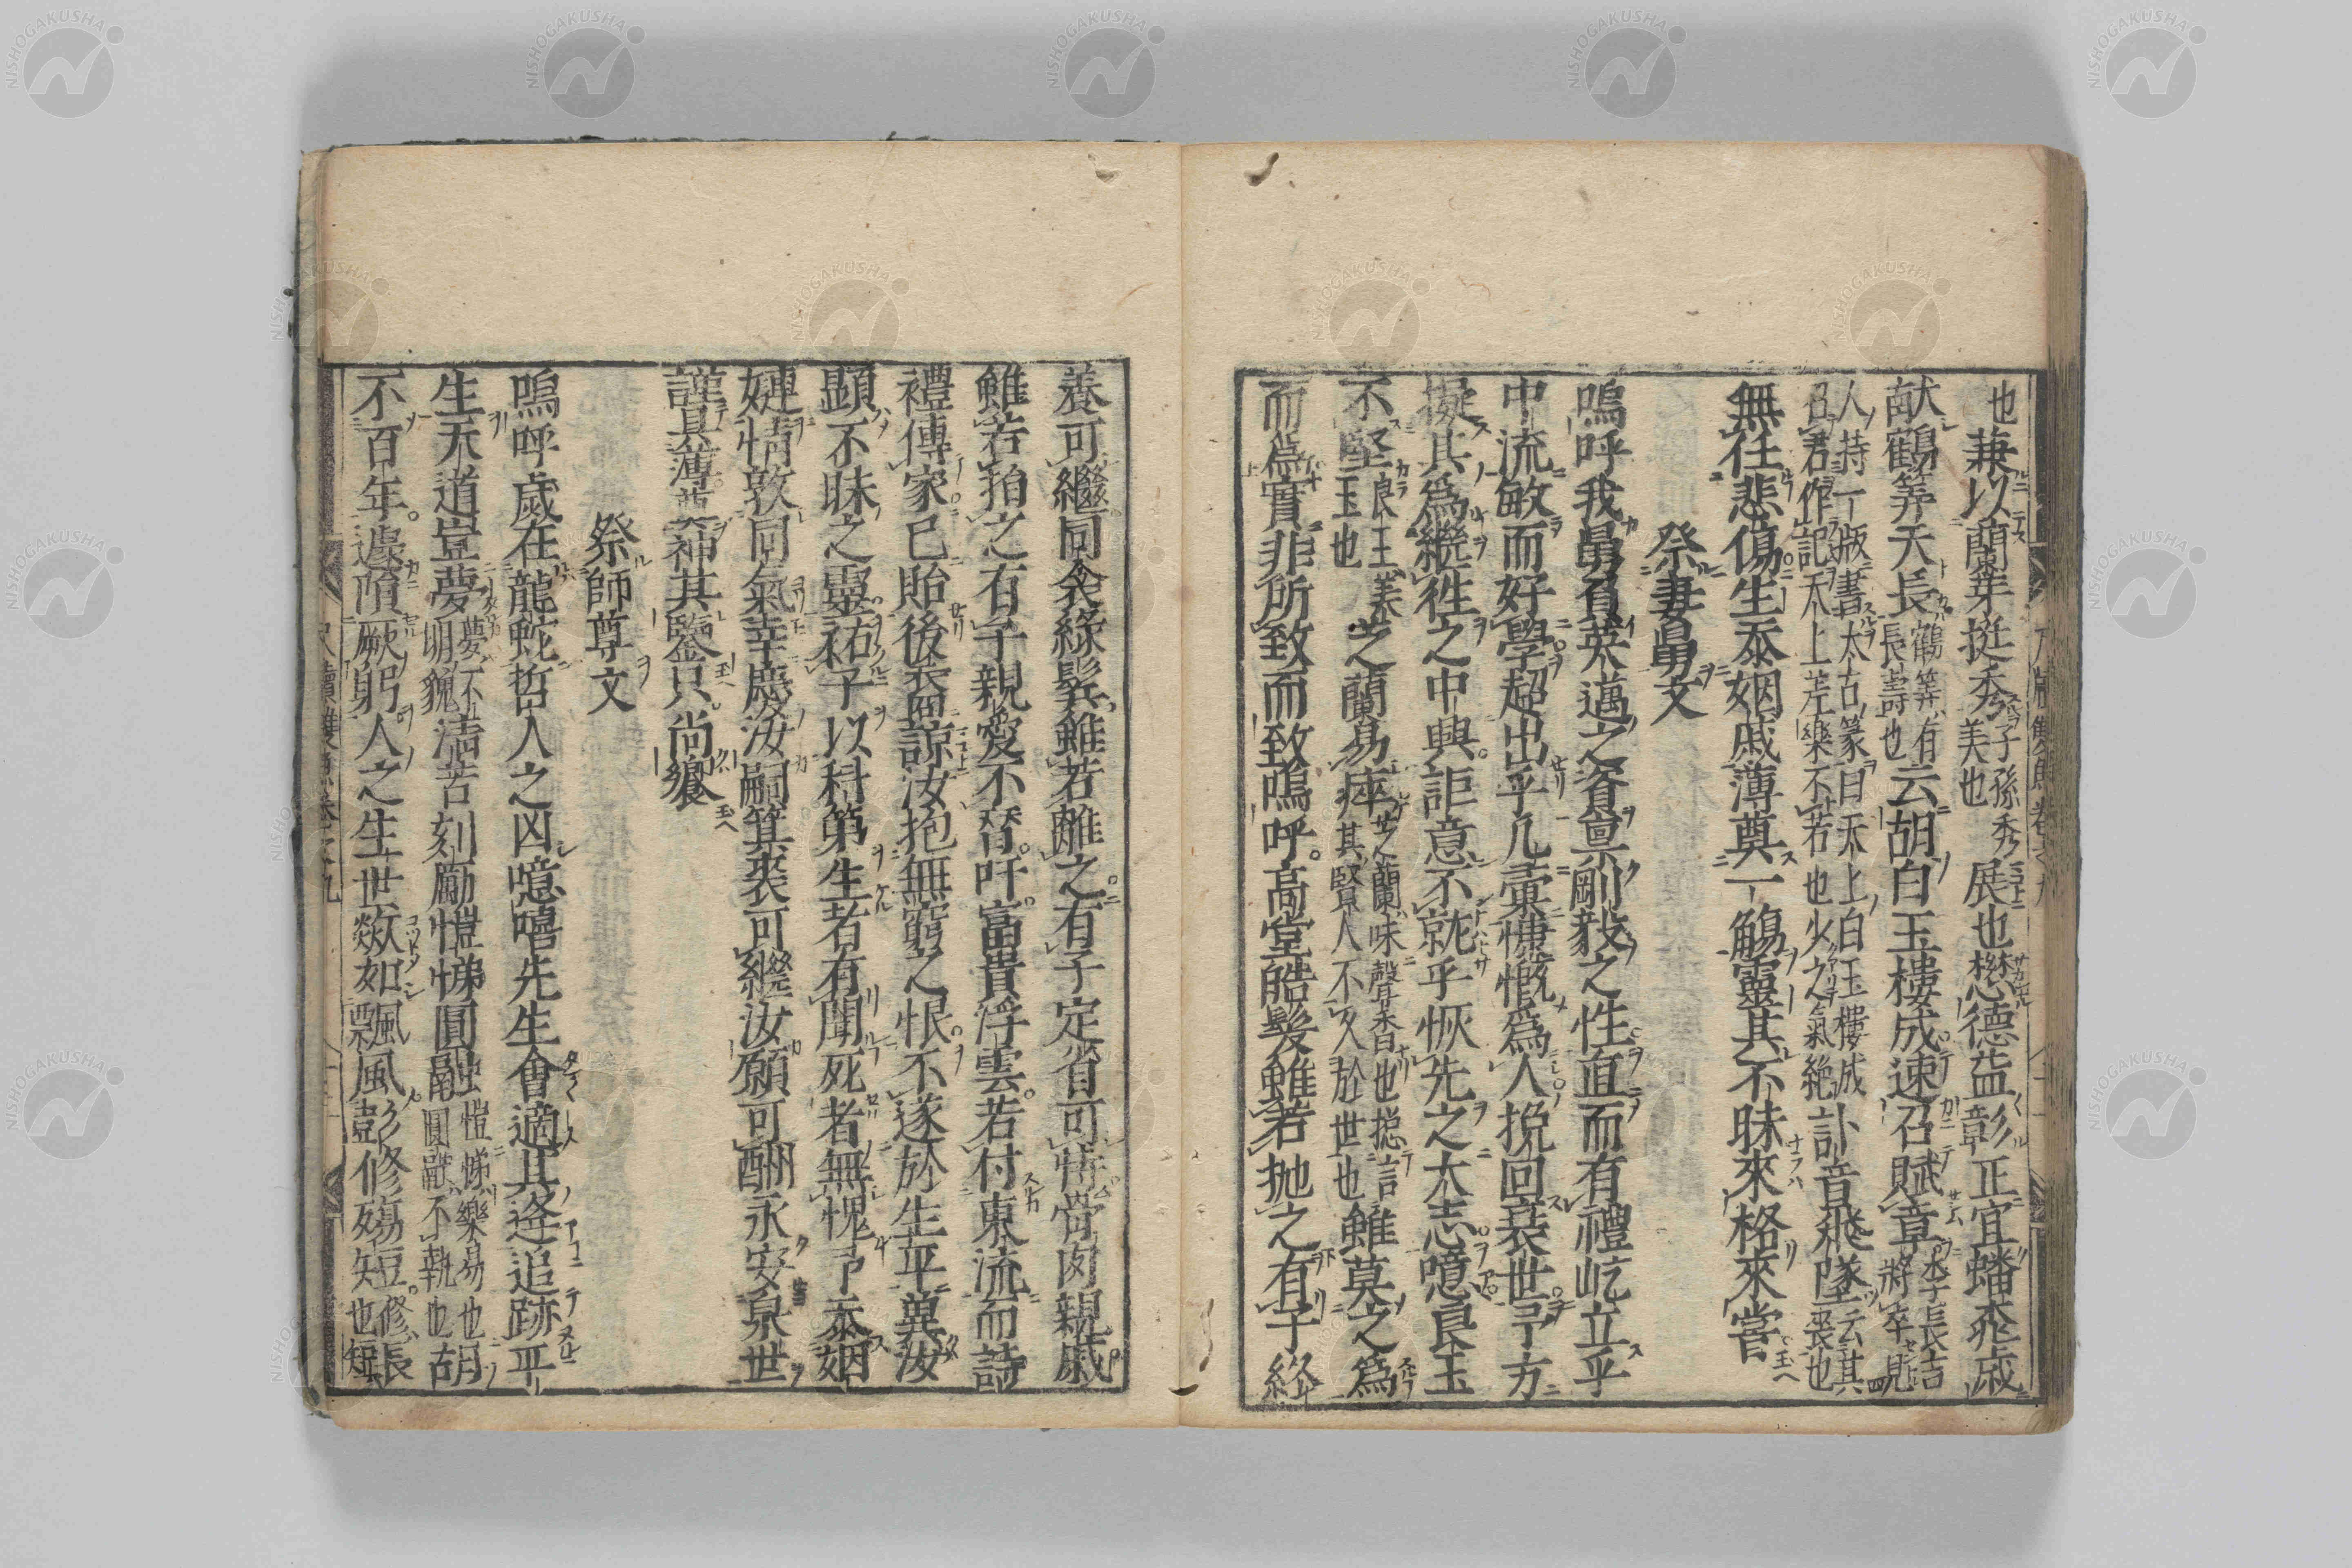 也兼以蘭芽挺秀子孫秀美也展也懋德益彰正宜蟠桃歲
献鶴筭天長鶴筭有長壽也云胡白玉樓成速召賦章李長吉將卒見
人持一版書太古篆曰天上白玉樓成召君作記天上差樂不若也少之氣絶訃音飛墜云其喪也
無任悲傷生忝姻戚薄奠一觴靈其不昧來格來嘗
祭妻舅文
嗚呼我舅負英邁之資禀剛毅之性直而有禮屹立乎
中流敏而好學超出乎凡彙慷慨爲人挽回衰世予方
擬其爲繼徃之中興詎意不就乎恢先之大志噫良玉
不堅良玉美玉也芝蘭易瘁芝蘭味聲香也揔言其賢人不久於世也雖莫之爲
而爲實非所致而致嗚呼高堂皓髮雖若抛之有子終
養可繼同衾綠鬂雖若離之有子定省可恃骨肉親戚
雖若拍之有子親愛不替吁富貴浮雲若付東流而詩
禮傳家已貽後裔諒汝抱無窮之恨不遂於生平冀汝
顯不昧之靈祐子以科第生若有聞死者無愧予忝姻
娌情敦同氣幸慶汝嗣箕裘可繼汝願可酬永安泉世
謹具薄奠神其鑒只尚饗
祭師尊文
嗚呼歲在龍蛇哲人之凶噫嘻先生會適其逢追跡平
生天道豈夢夢不明貌清苦刻勵愷悌圓融愷悌樂易也圓融不執也胡
不百年遽隕厥躬人之生世歘如飄風彭修殤短修長也短